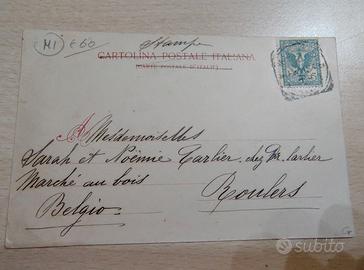 MI
£60
Stampe
CARTOLINA POSTALE ITALIANA
(CARTE POSTALE D'ITALIE)
A Mesdemoiselles
Sarah et Noëmie Carlier, chez Mr. Carlier
Marché au bois
Roulers
Belgio
subito